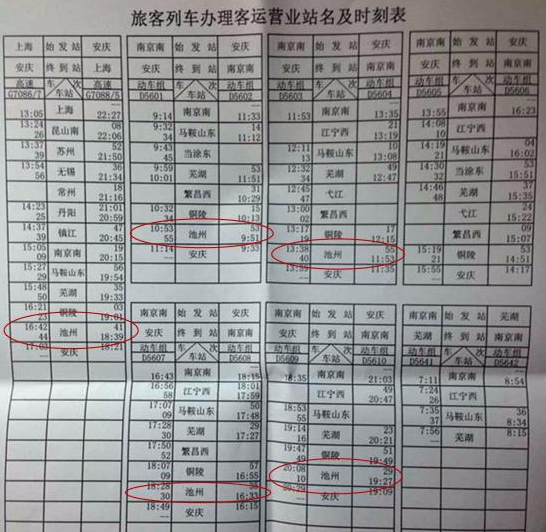 旅客列车办理客运营业站名及时刻表
上海 始发站 安庆
安庆 终到站 上海
高速 车 次 高速
G7086/7 车站 G7088/5
13:05 上海 22:27
13:24 昆山南 08
26 22:06
13:37 苏州 52
39 21:50
13:54 无锡 36
56 21:34
常州 18
21:16
14:23 丹阳 01
25 20:59
14:37 镇江 47
39 20:45
15:05 南京南 19
09 20:15
15:27 马鞍山东 56
29 19:54
15:48 芜湖 35
50 19:33
16:21 铜陵 03
23 19:01
16:42 池州 41
44 18:39
安庆 18:21
南京南 始发站 安庆
安庆 终到站 南京南
动车组 车 次 动车组
D5601 车站 D5602
9:14 南京南 11:33
9:32 马鞍山东 14
34 11:12
9:43 当涂东
45
9:59 芜湖 53
10:01 10:51
繁昌西 31
10:29
10:32 铜陵 15
34 10:13
10:53 池州 53
55 9:51
11:14 安庆 9:33
南京南 始发站 安庆
安庆 终到站 南京南
动车组 车 次 动车组
D5603 车站 D5604
11:53 南京南 13:35
江宁西 21
13:19
12:11 马鞍山东 10
13 13:08
12:32 芜湖 49
34 12:47
12:45 弋江
47
13:00 繁昌西
02
13:17 铜陵 17
19 12:15
13:38 池州 55
40 11:53
13:59 安庆 11:35
南京南 始发站 安庆
安庆 终到站 南京南
动车组 车 次 动车组
D5605 车站 D5606
13:55 南京南 16:23
14:08 江宁西
10
14:19 马鞍山东 04
21 16:02
14:30 当涂东 53
32 15:51
14:46 芜湖 37
48 15:35
弋江 24
15:22
繁昌西 09
15:07
15:19 铜陵 53
21 14:51
15:55 安庆 14:17
南京南 始发站 安庆
安庆 终到站 南京南
动车组 车 次 动车组
D5607 车站 D5608
16:43 南京南 18:15
16:56 江宁西 18:01
58 17:59
17:07 马鞍山东 50
09 17:48
17:28 芜湖 29
30 17:27
17:50 繁昌西
52
18:07 铜陵 57
09 16:55
18:28 池州 35
30 16:33
18:49 安庆 16:15
南京南 始发站 安庆
安庆 终到站 南京南
动车组 车 次 动车组
D5609 车站 D5610
18:35 南京南 21:03
江宁西 49
20:47
18:53 马鞍山东
55
19:14 芜湖 23
16 20:21
19:47 铜陵 51
49 19:49
20:08 池州 29
10 19:27
20:29 安庆 19:09
南京南 始发站 芜湖
芜湖 终到站 南京南
动车组 车 次 动车组
D5641 车站 D5642
7:11 南京南 8:54
7:24 江宁西
26
7:35 马鞍山东 36
37 8:34
7:56 芜湖 8:15